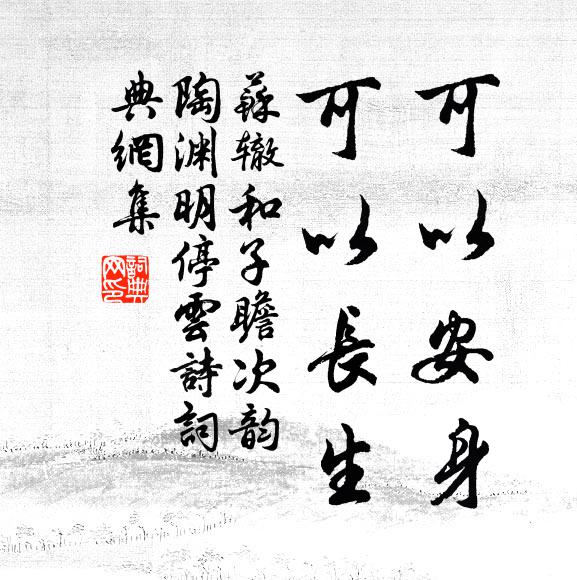 可以安身
可以長生
蘇辙和子瞻次韵
陶渊明停雲詩詞
典網集
詞典網印